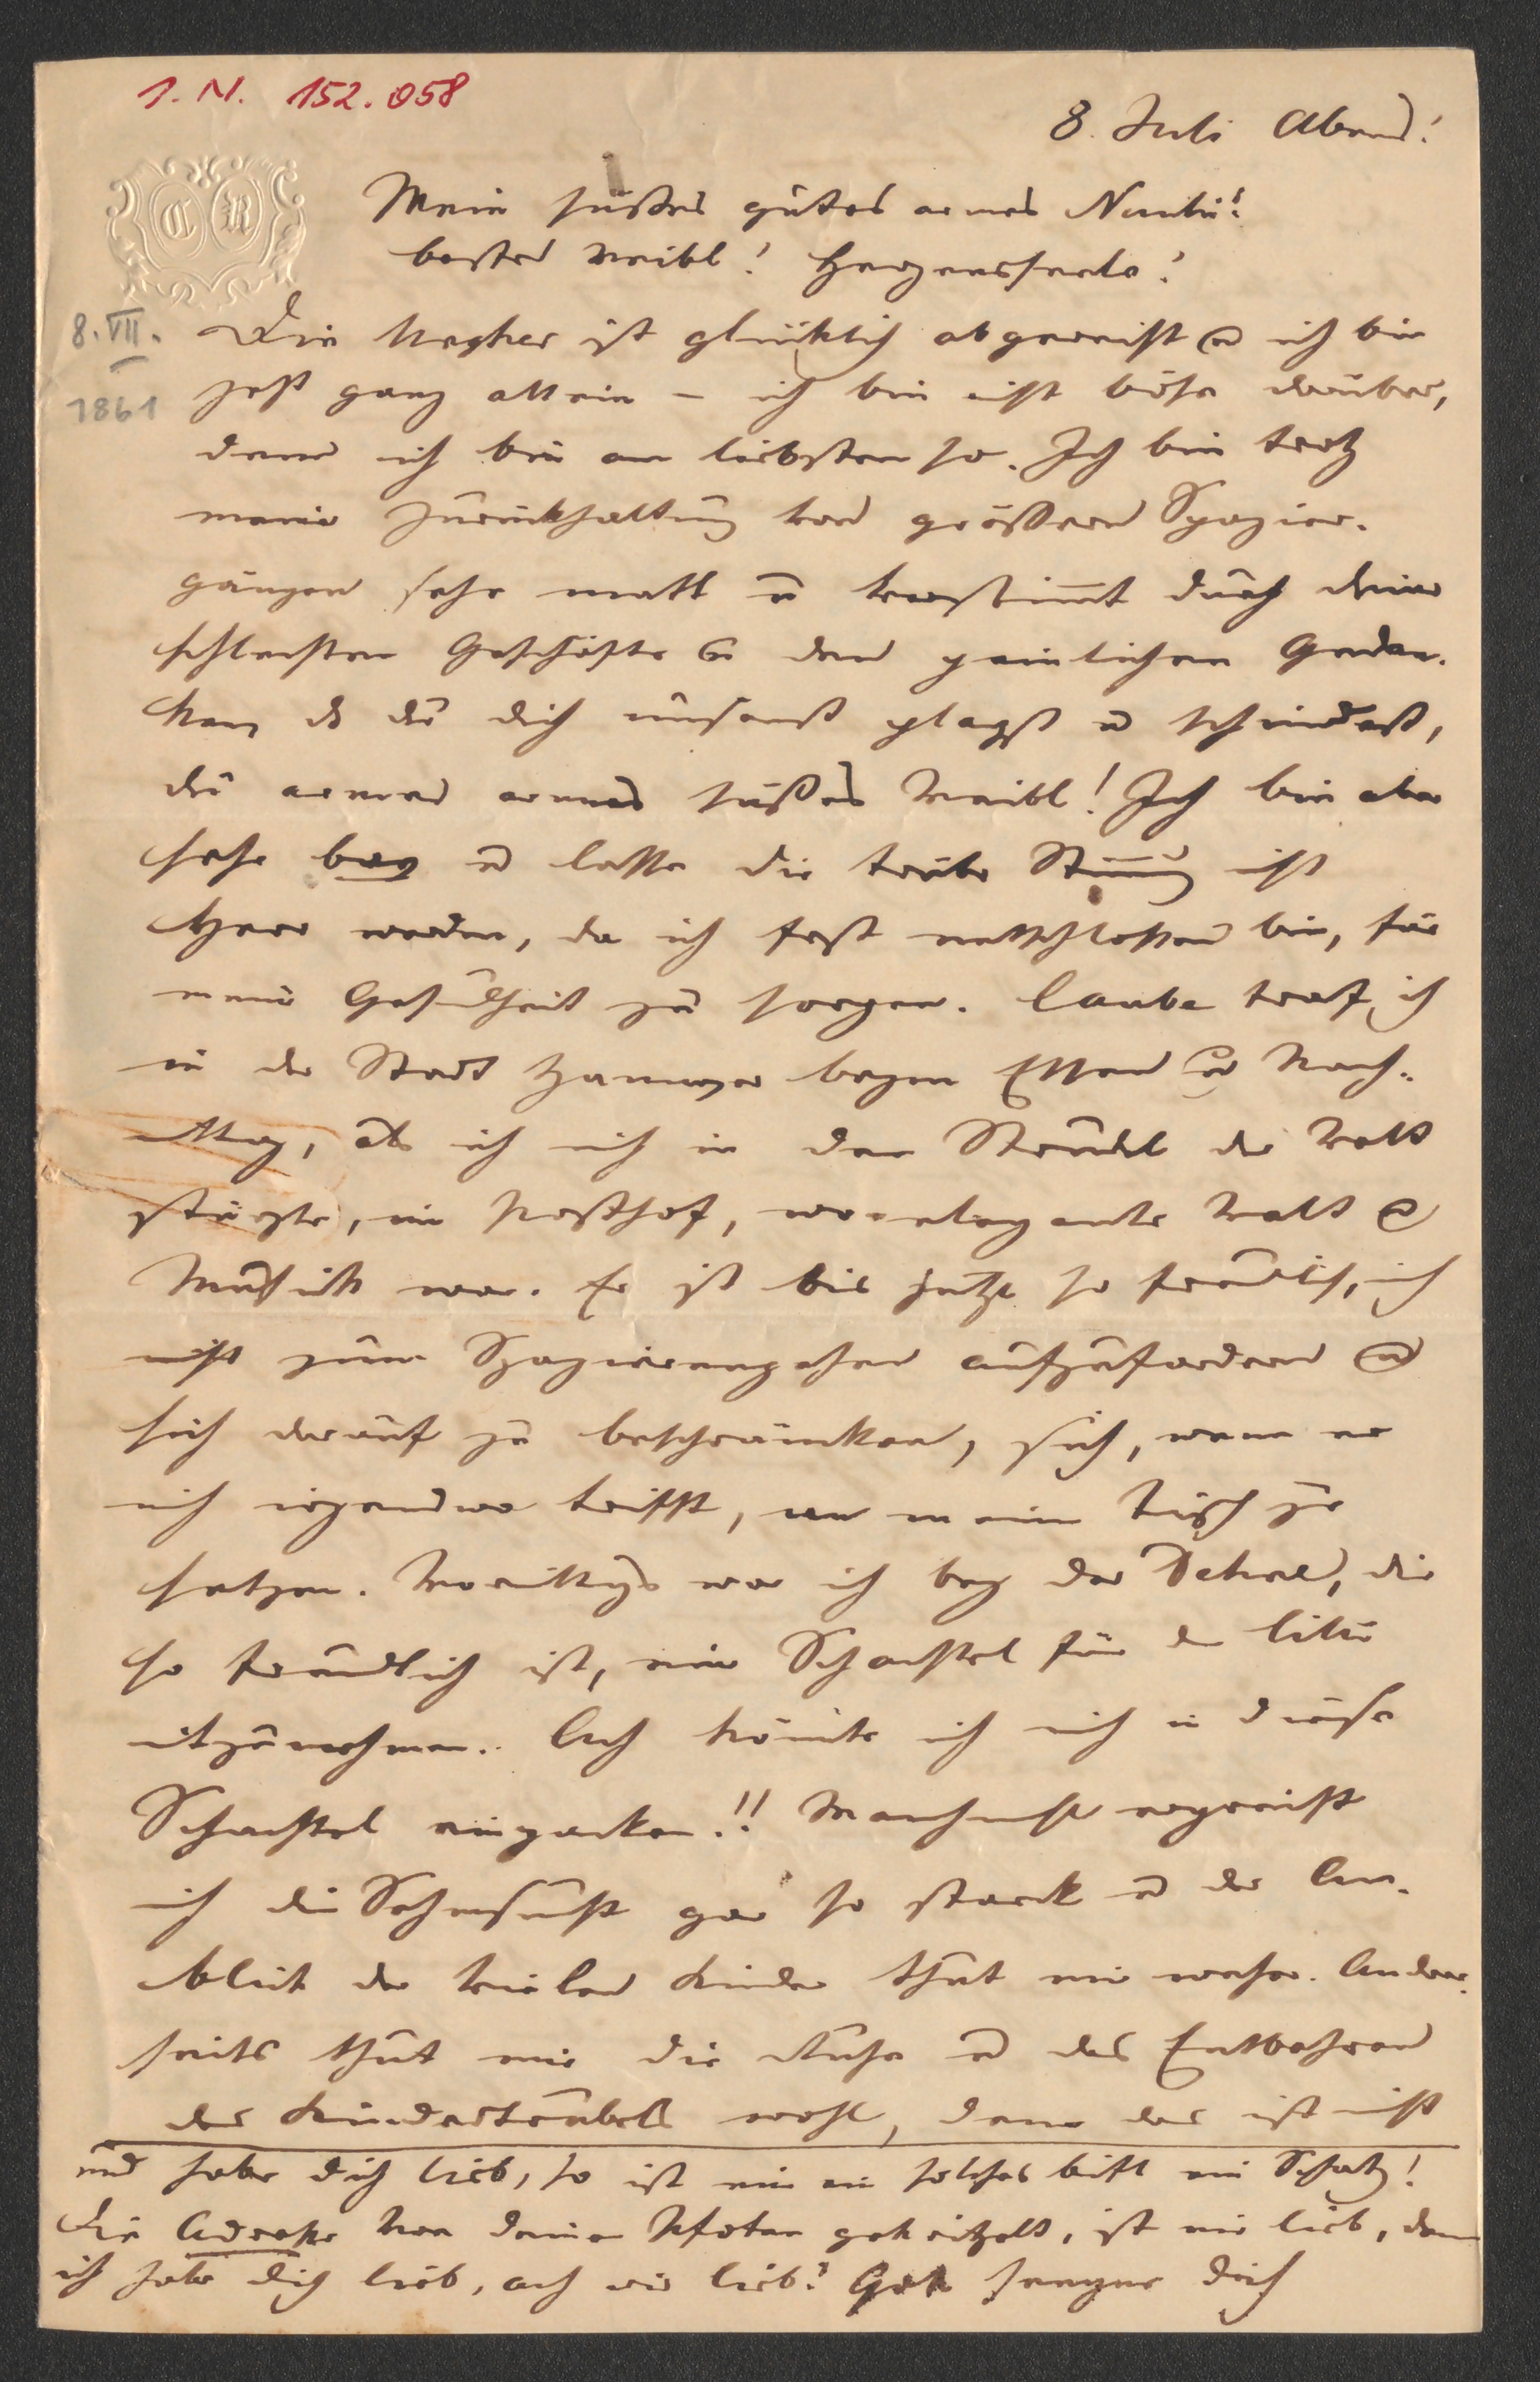 I. N. 152.058
8. Juli Abend!
C R
Mein süßes gutes armes Nuntü!
bestes Weibl! Herzensseele!
8. VII.
1861
Die Megker ist glücklich abgereist u ich bin
jetzt ganz allein – ich bin nicht böse darüber,
denn ich bin am liebsten so. Ich bin trotz
meiner Zurückhaltung von größern Spazier-
gängen sehr matt u verstimmt durch deine
schlechten Geschäfte u den peinlichen Gedan-
ken, ds du dich umsonst plagst u schindest,
du armes armes süßes Weibl! Ich bin aber
sehr brav u lasse die trübe Stimmung nicht
Herr werden, da ich fest entschlossen bin, für
meine Gesundheit zu sorgen. Laube traf ich
in der Stadt Hannover beym Essen u Nach-
mittag, als ich mich in den Strudel der Welt
stürzte, im Posthof, wo elegante Welt u
Musick war. Er ist bis jetzt so freundlich, mich
nicht zum Spazierengehen aufzufordern u
sich darauf zu beschränken, sich, wenn er
mich irgendwo trifft, an meinen Tisch zu
setzen. Vormittags war ich bey der , die
so freundlich ist, eine Schachtel für die Lili
mitzunehmen. Ach könnte ich mich in diese
Schachtel einpacken!! Manchmal ergreift
mich die Sehnsucht gar so starck u der An-
blick der vielen Kinder thut mir wehe. Andrer-
seits thut mir die Ruhe u das Entbehren
des Kindertrubels wohl, denn das ist nicht
und habe dich lieb, so ist mir ein solches bist mein Schatz!
Die Adresse von deinen Pfoten gekritzelt, ist mir lieb, denn
ich habe dich lieb, ach wie lieb! Gott seegne dich